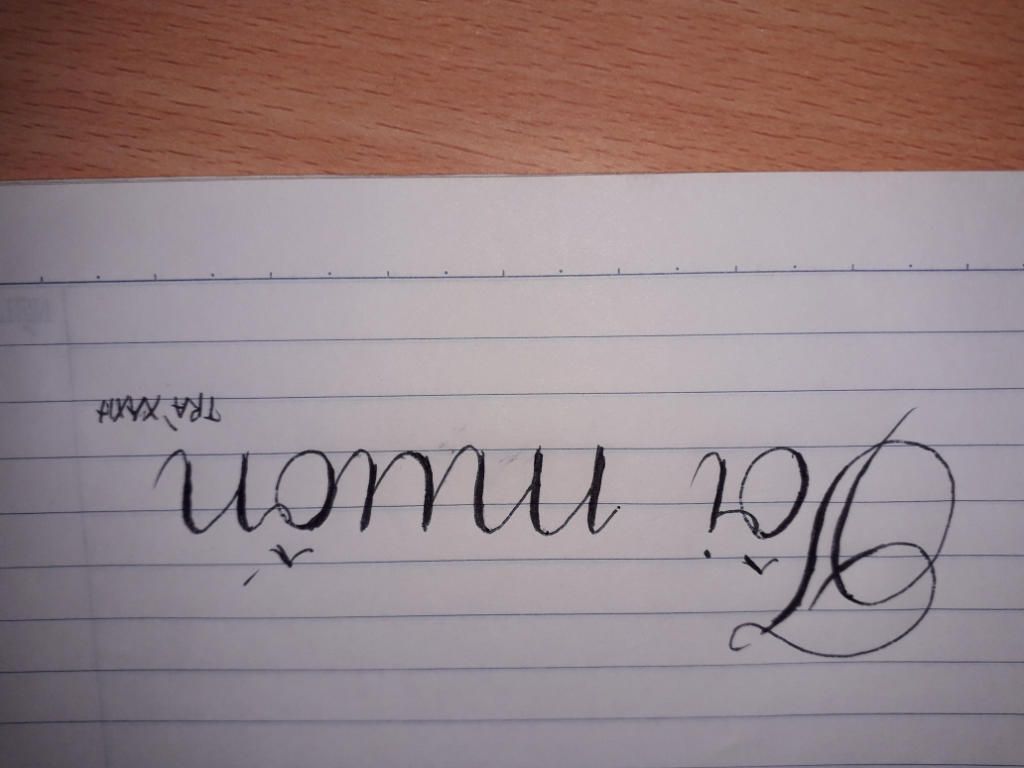 Tôi muốn
TRÀ XANH